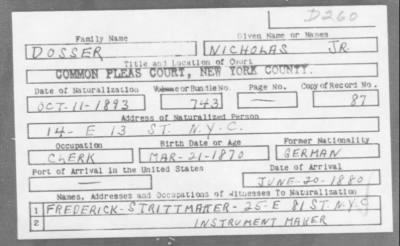 D260
Family Name Given Name or Names
DOSSER NICHOLAS JR
Title and Location of Court
COMMON PLEAS COURT, NEW YORK COUNTY.
Date of Naturalization Volume or Bundle No. Page No. Copy of Record No.
OCT-11-1893 743 — 87
Address of Naturalized Person
14- E 13 ST. N.Y.C.
Occupation Birth Date or Age Former Nationality
CLERK MAR-21-1870 GERMAN
Port of Arrival in the United States Date of Arrival
— JUNE-20-1880
Names, Addresses and Occupations of Witnesses To Naturalization
1 FREDERICK-STRITTMATER-25-E 81 ST. N.Y.C
2 INSTRUMENT MAKER